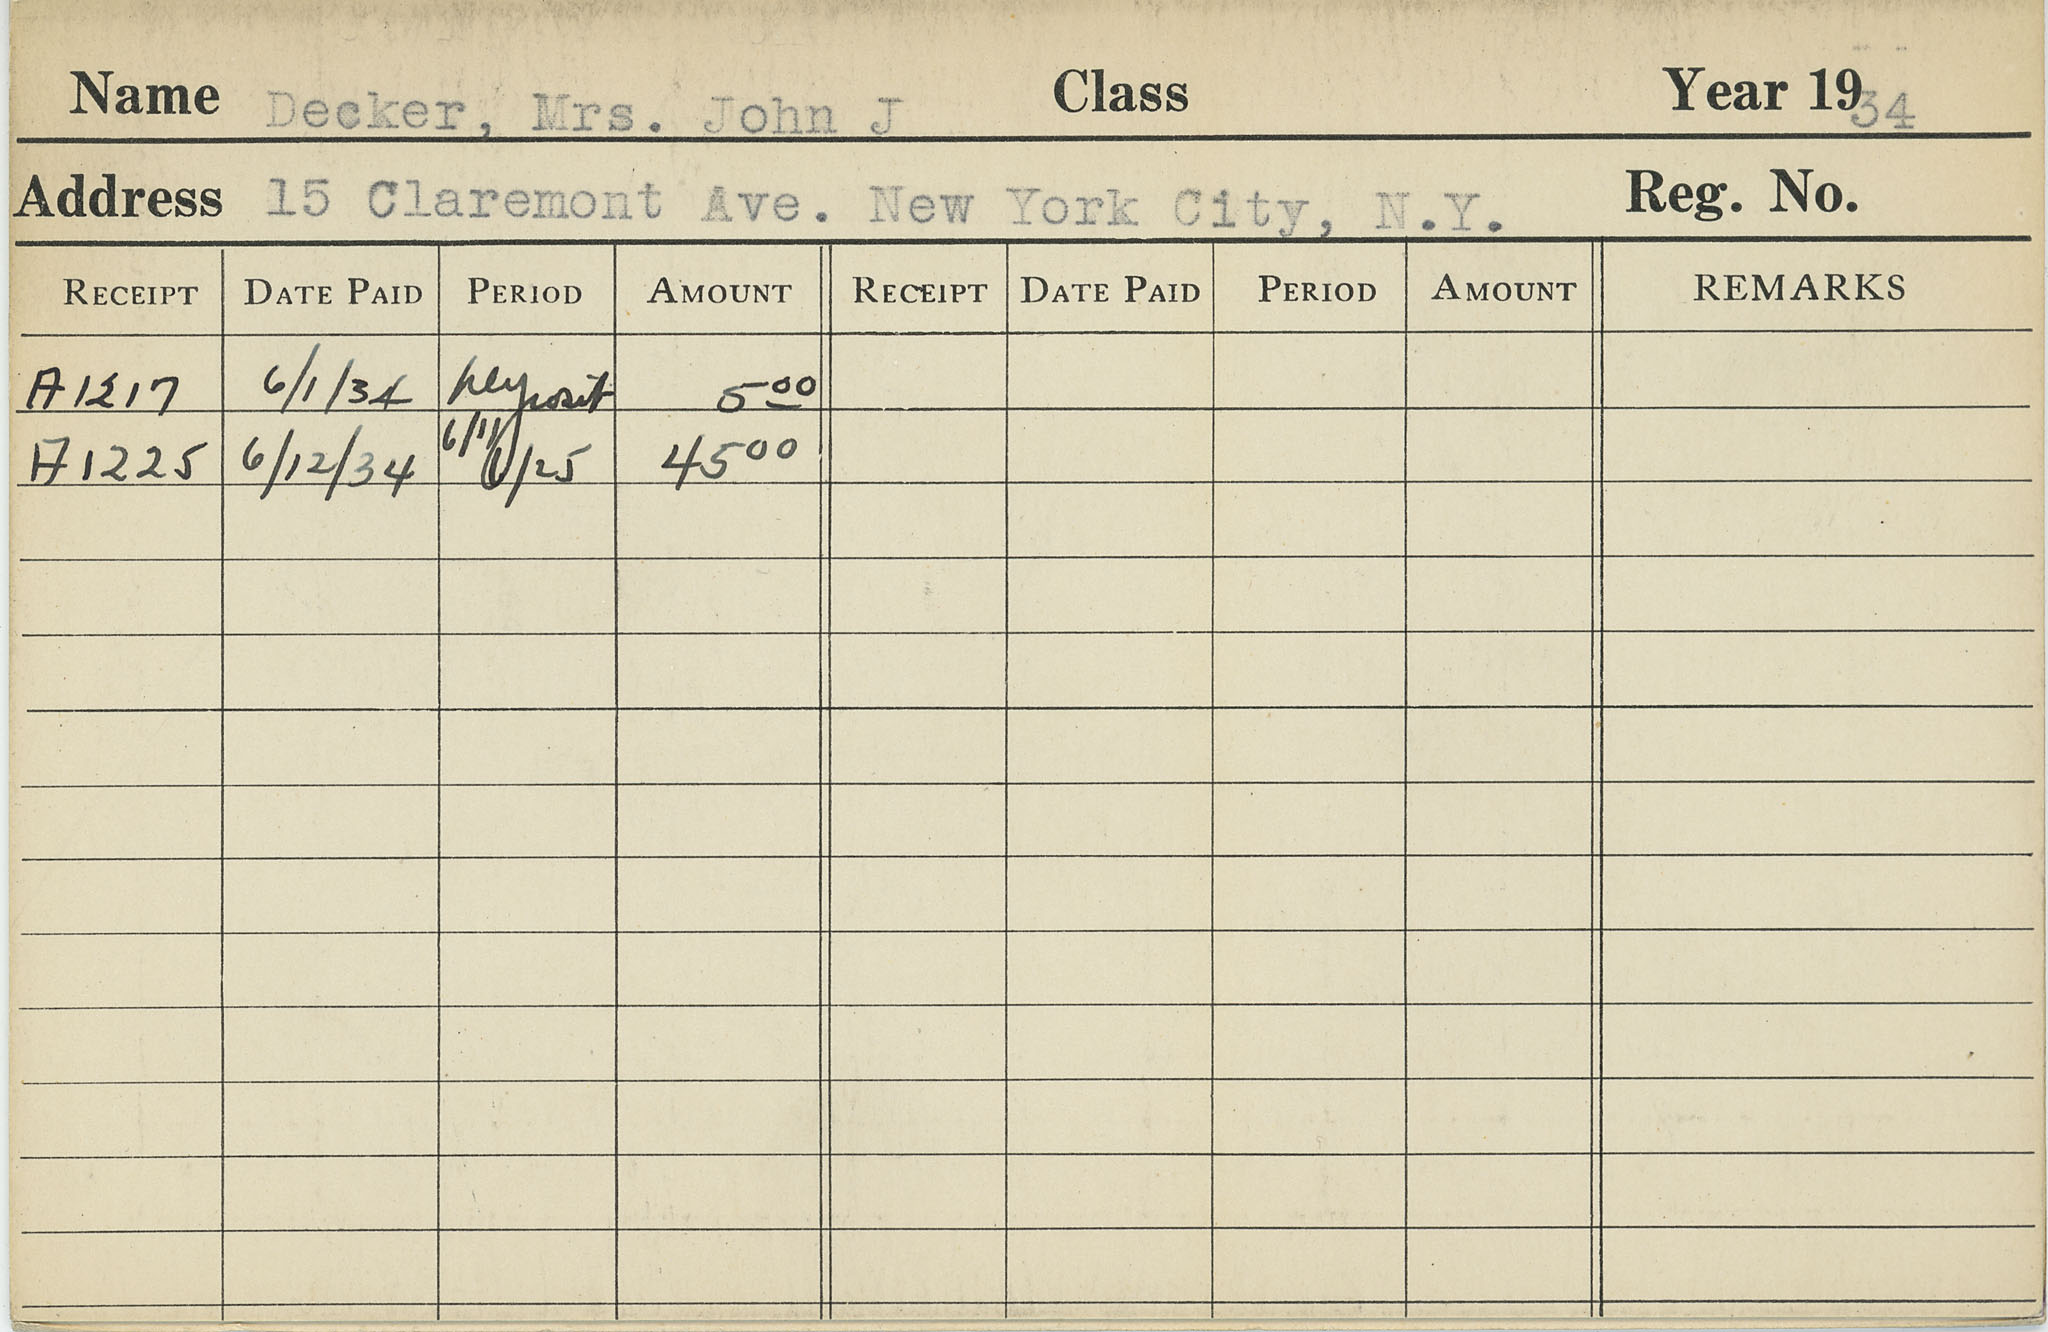 Name Decker, Mrs. John J Class Year 1934
Address 15 Claremont Ave. New York City, N.Y. Reg. No.
RECEIPT DATE PAID PERIOD AMOUNT RECEIPT DATE PAID PERIOD AMOUNT REMARKS
A1217 6/1/34 Deposit 5 00
A1225 6/12/34 6/11 6/25 45 00